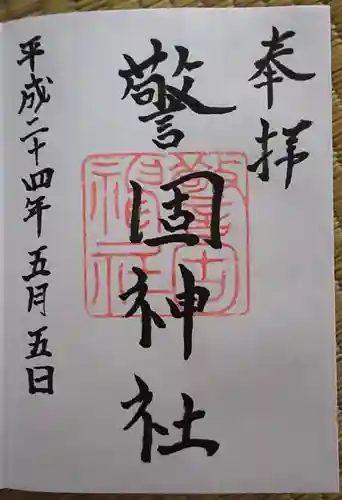 奉拝
警固神社
平成二十四年五月五日